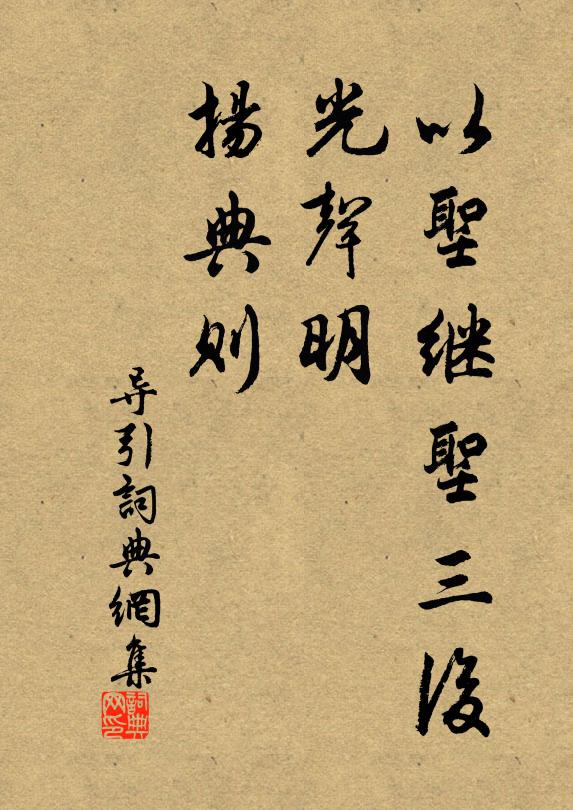 以聖继聖三後
光聲明
揚典则
导引詞典網集
詞典网印